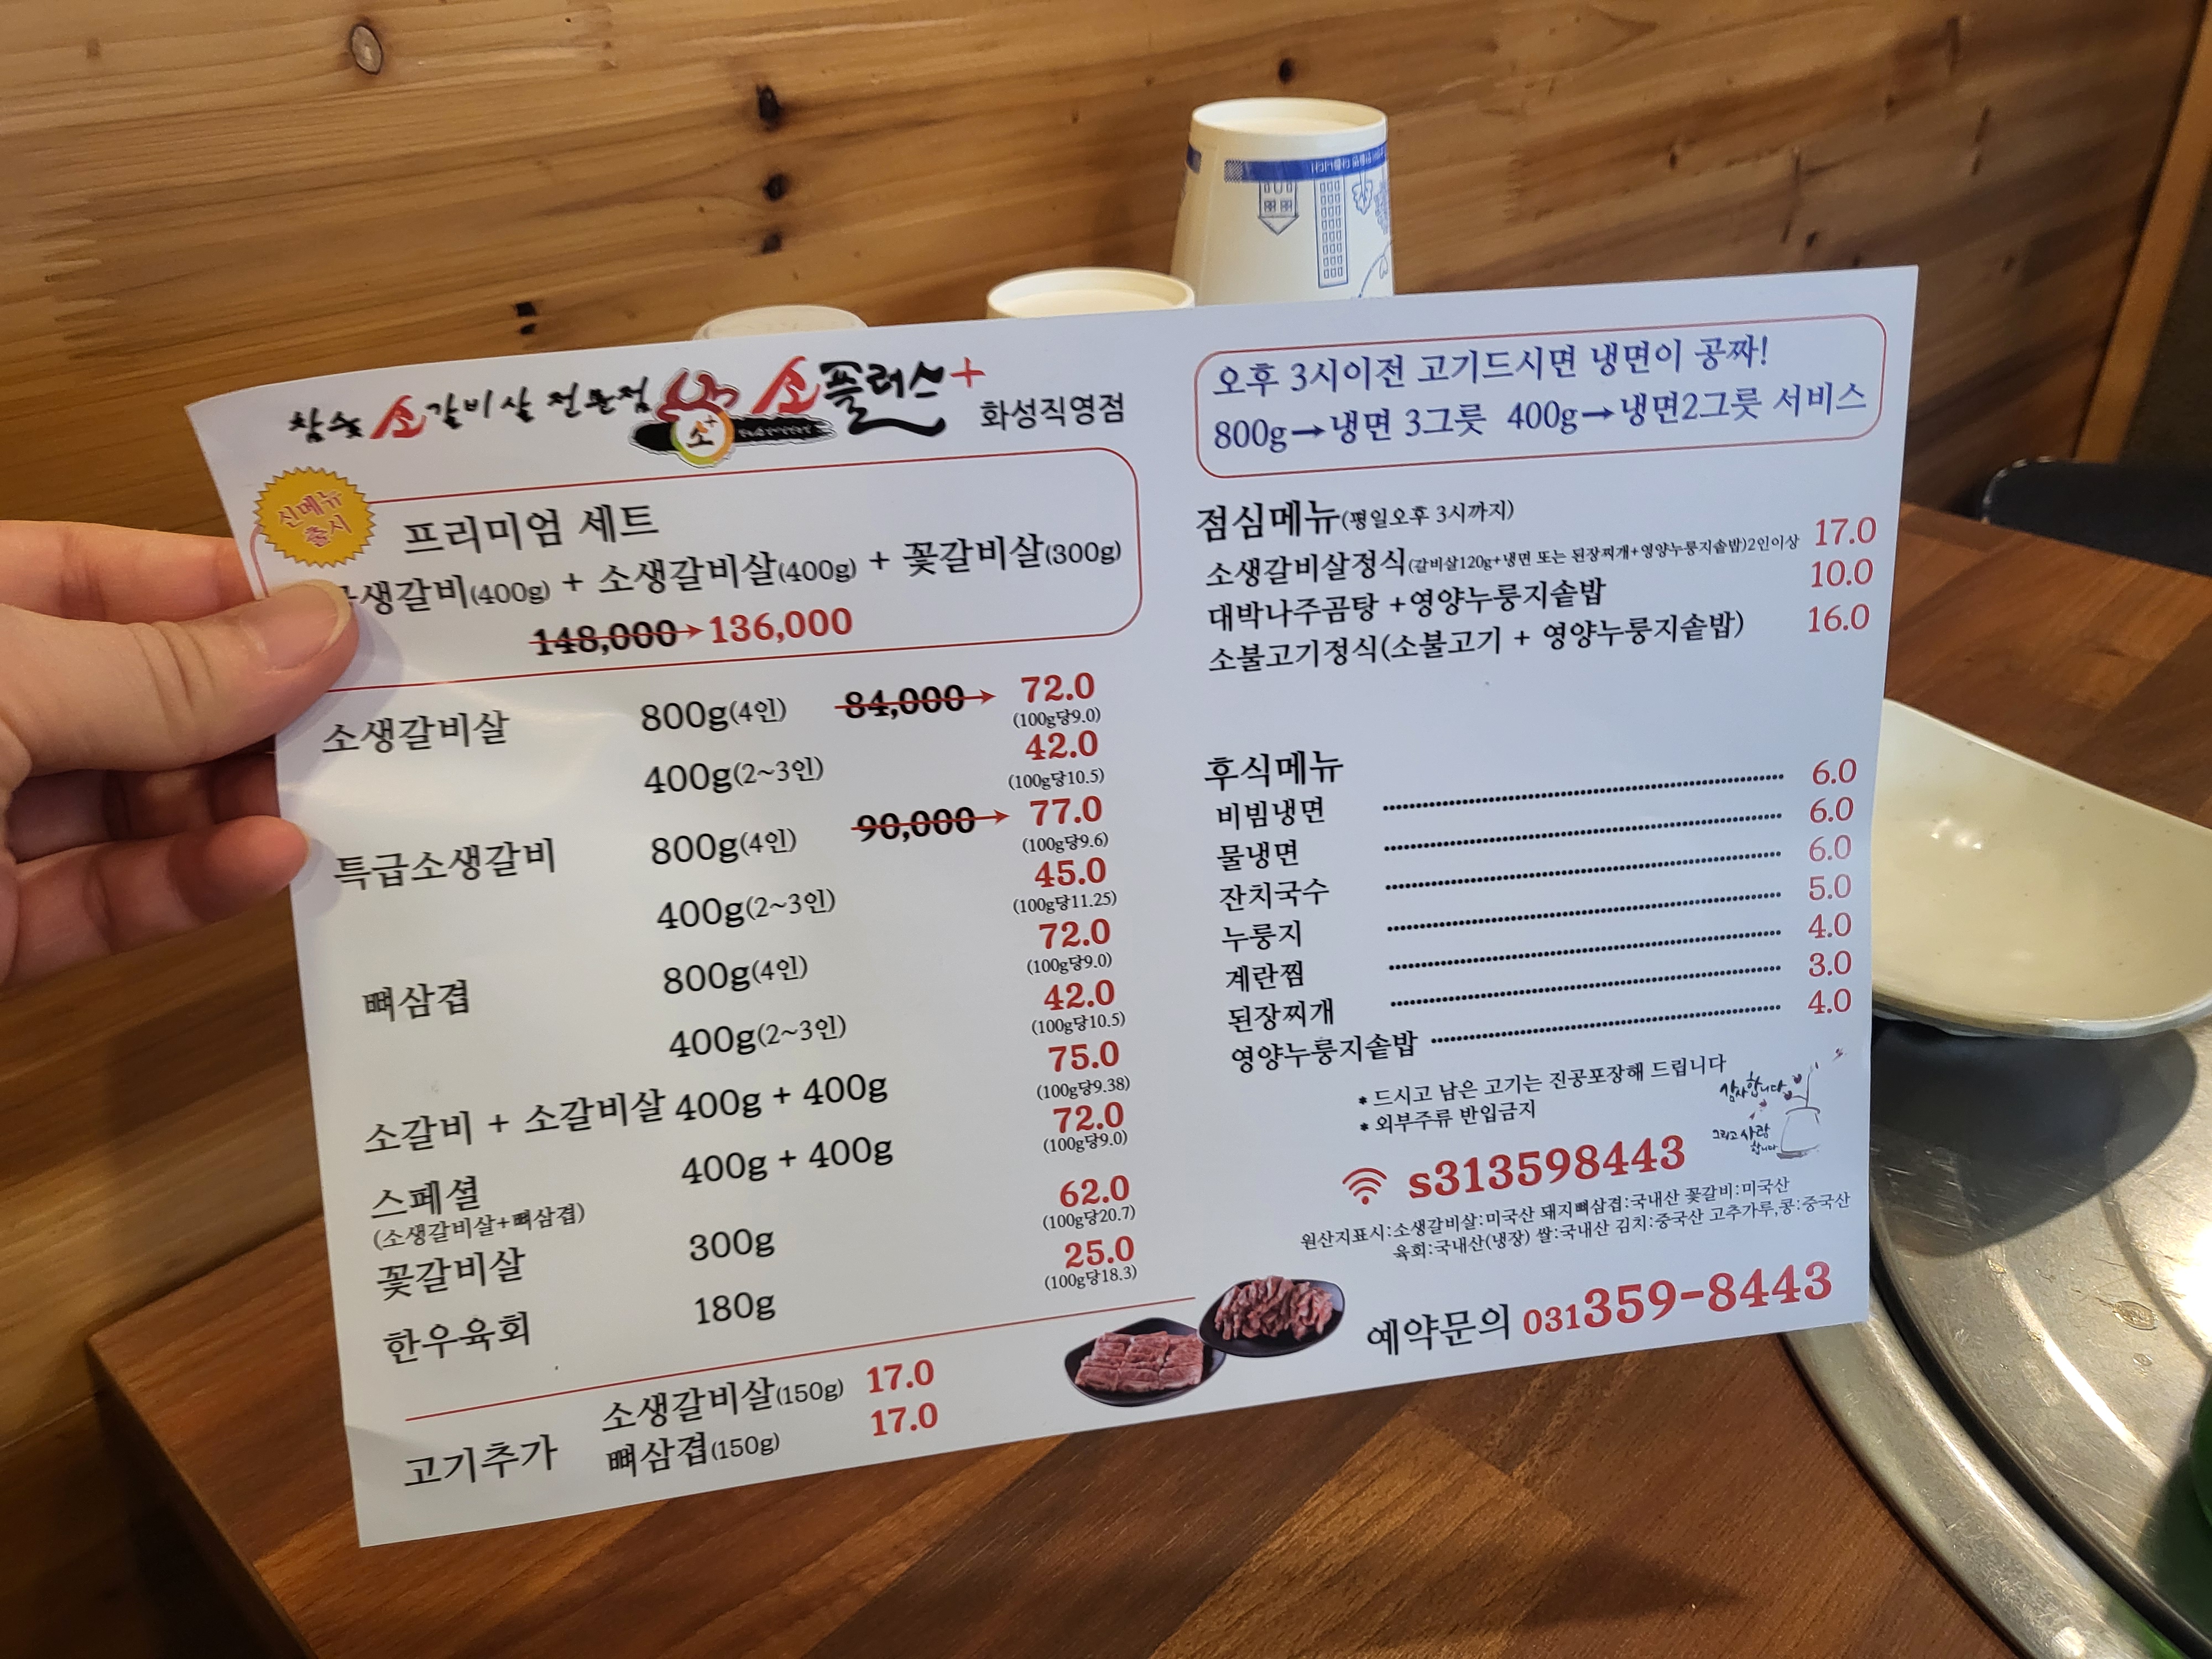 참숯 소갈비살 전문점 소+ 소플러스+ 화성직영점
신메뉴
출시
프리미엄 세트
생갈비(400g) + 소생갈비살(400g) + 꽃갈비살(300g)
148,000→136,000
소생갈비살 800g(4인) 84,000→ 72.0
(100g당9.0)
400g(2~3인) 42.0
(100g당10.5)
특급소생갈비 800g(4인) 90,000→ 77.0
(100g당9.6)
400g(2~3인) 45.0
(100g당11.25)
뼈삼겹 800g(4인) 72.0
(100g당9.0)
400g(2~3인) 42.0
(100g당10.5)
소갈비 + 소갈비살 400g + 400g 75.0
(100g당9.38)
스페셜 400g + 400g 72.0
(소생갈비살+뼈삼겹) (100g당9.0)
꽃갈비살 300g 62.0
(100g당20.7)
한우육회 180g 25.0
(100g당18.3)
고기추가 소생갈비살(150g) 17.0
뼈삼겹(150g) 17.0
오후 3시이전 고기드시면 냉면이 공짜!
800g→냉면 3그릇 400g→냉면2그릇 서비스
점심메뉴(평일오후 3시까지)
소생갈비살정식(갈비살120g+냉면 또는 된장찌개+영양누룽지솥밥)2인이상 17.0
대박나주곰탕 +영양누룽지솥밥 10.0
소불고기정식(소불고기 + 영양누룽지솥밥) 16.0
후식메뉴
비빔냉면 6.0
물냉면 6.0
잔치국수 6.0
누룽지 5.0
계란찜 4.0
된장찌개 3.0
영양누룽지솥밥 4.0
* 드시고 남은 고기는 진공포장해 드립니다
* 외부주류 반입금지
감사합니다
그리고 사랑
합니다
s313598443
원산지표시:소생갈비살:미국산 돼지뼈삼겹:국내산 꽃갈비:미국산
육회:국내산(냉장) 쌀:국내산 김치:중국산 고추가루,콩:중국산
예약문의 031359-8443